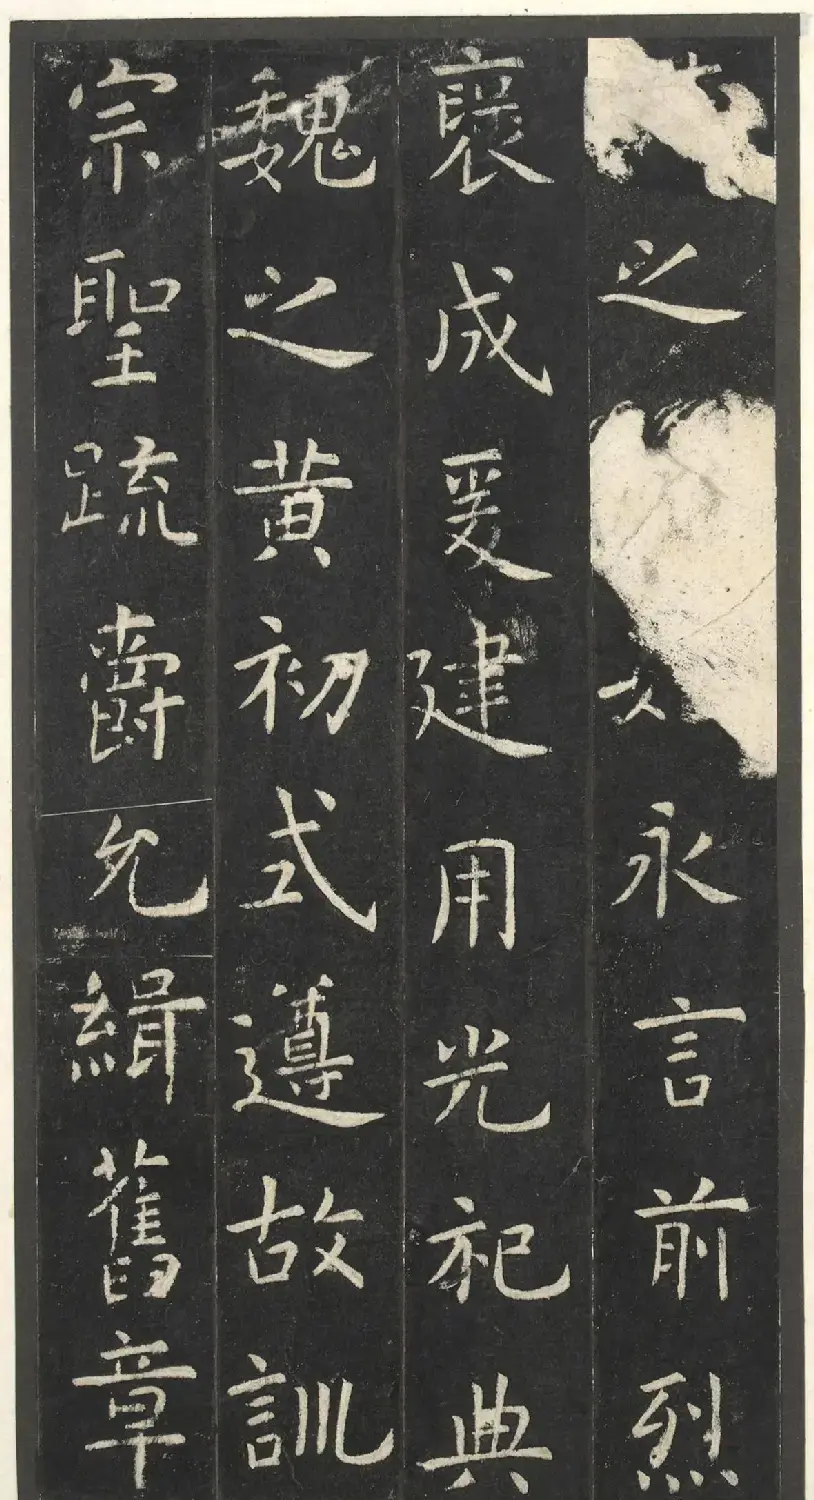 之永言前烈
襃成爰建用光祀典
魏之黃初式遵故訓
宗聖疏爵允緝舊章